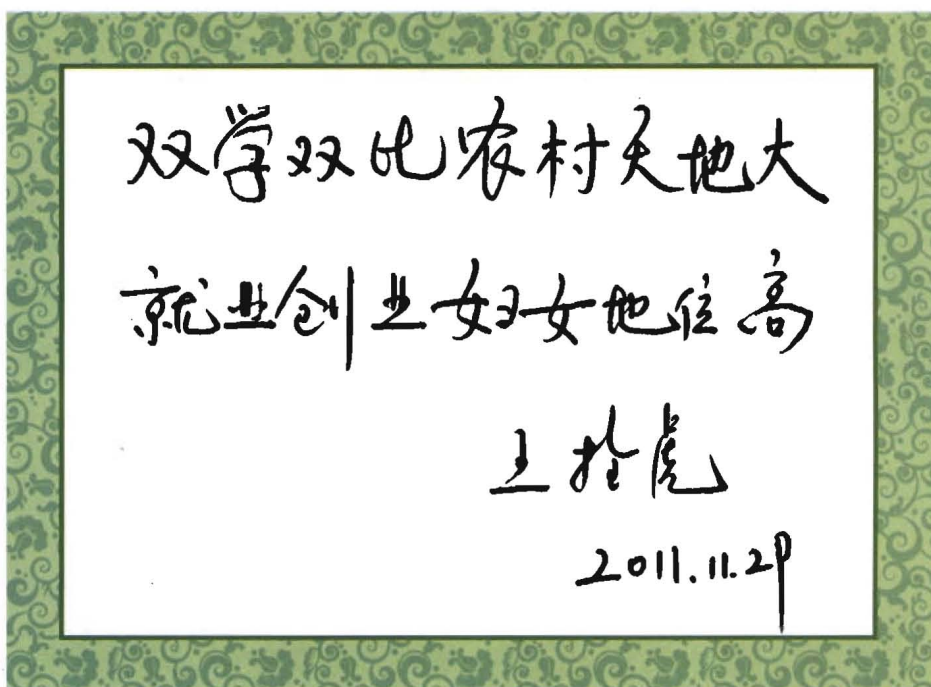 双学双比农村天地大
就业创业妇女地位高
王拴虎
2011.11.29